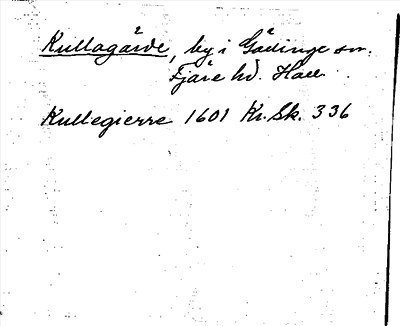 Kullagårde, by i Gällinge sn.
Fjäre hd. Hall.
Kullegierre 1601 Kr. Sk. 336